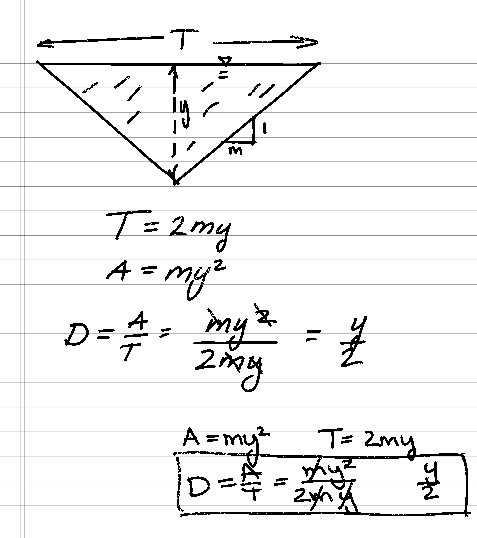 T
y
1
m
T = 2my
A = my²
D = A/T = my²/2my = y/2
A = my² T = 2my
D = A/T = my²/2my y/2